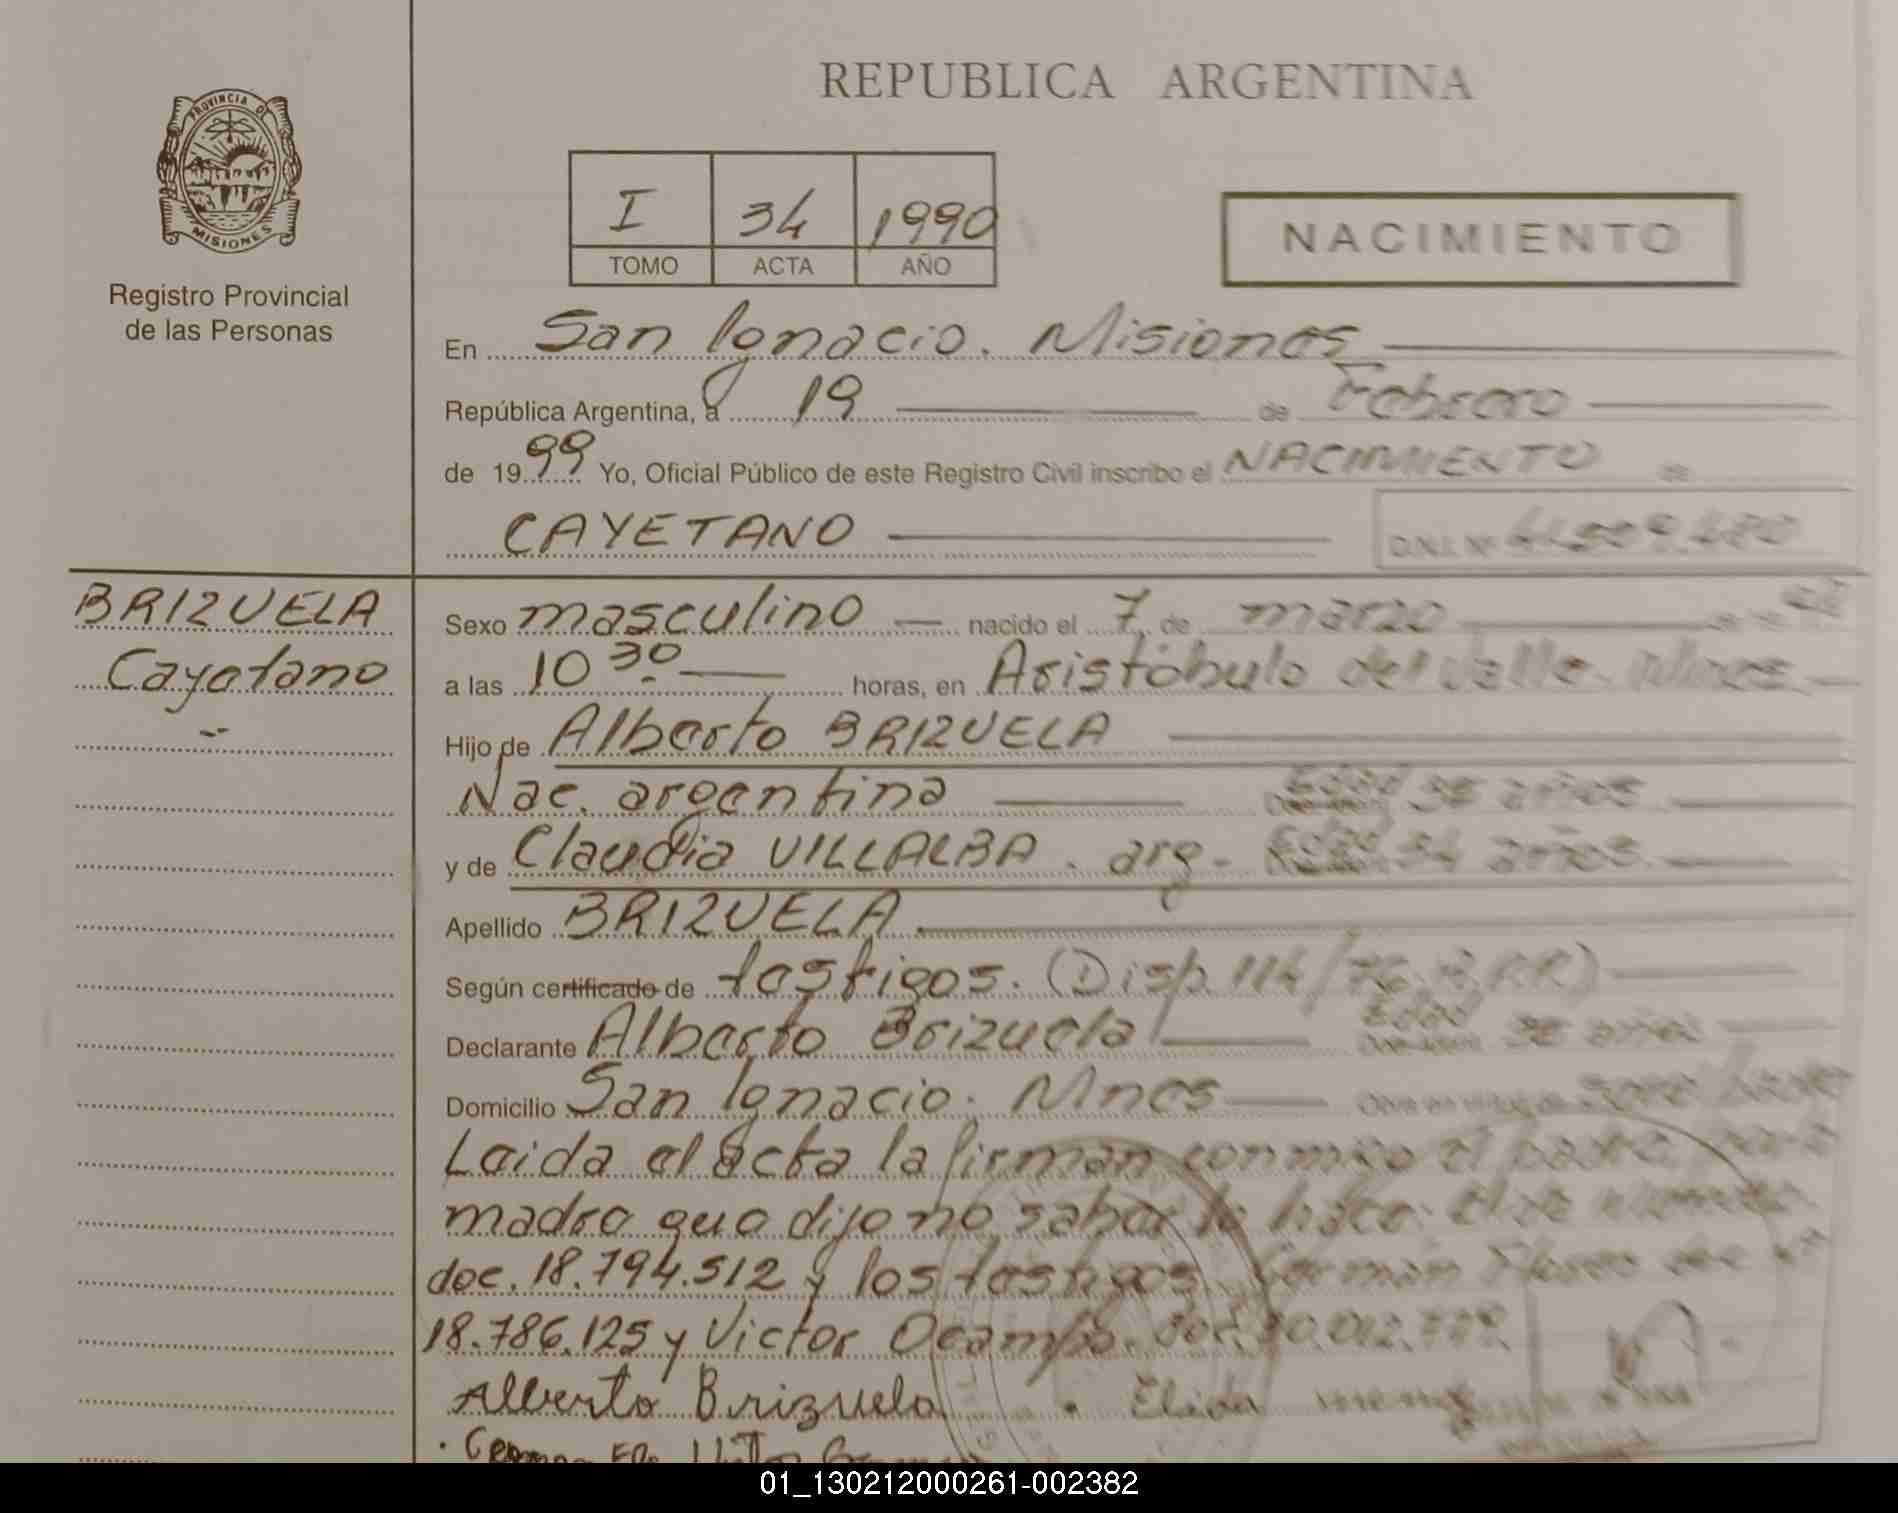 PROVINCIA DE
MISIONES
Registro Provincial
de las Personas
REPUBLICA ARGENTINA
I 34 1990
TOMO ACTA AÑO
NACIMIENTO
En San Ignacio. Misiones
República Argentina, a 19 de Febrero
de 1999 Yo, Oficial Público de este Registro Civil inscribo el NACIMIENTO de
CAYETANO
D.N.I. Nº
BRIZUELA
Cayetano
Sexo masculino nacido el 7 de marzo
a las 10 30 horas, en Aristóbulo del Valle. Mnes
Hijo de Alberto BRIZUELA
Nac. argentina Edad años
y de Claudia VILLALBA. arg. Edad 34 años
Apellido BRIZUELA
Según certificado de testigos. (Disp. 114/76
Declarante Alberto Brizuela Edad años
Domicilio San Ignacio. Mnes
Leida el acta la firman conmigo el padre, por la
madre que dijo no saber lo hace
doc. 18.794.512 y los testigos Germán
18.786.125 y Victor Ocampo. doc.
Alberto Brizuela Elida
01_130212000261-002382